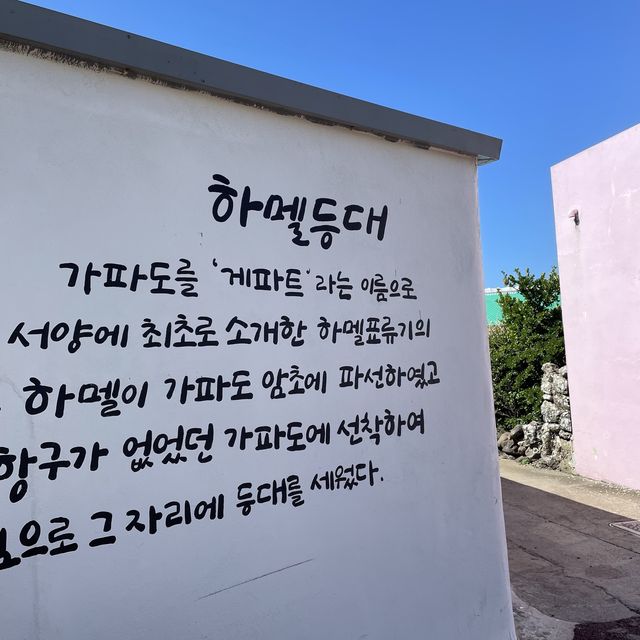 하멜등대
가파도를 '케파트' 라는 이름으로
서양에 최초로 소개한 하멜표류기의
하멜이 가파도 암초에 파선하였고
항구가 없었던 가파도에 선착하여
으로 그 자리에 등대를 세웠다.